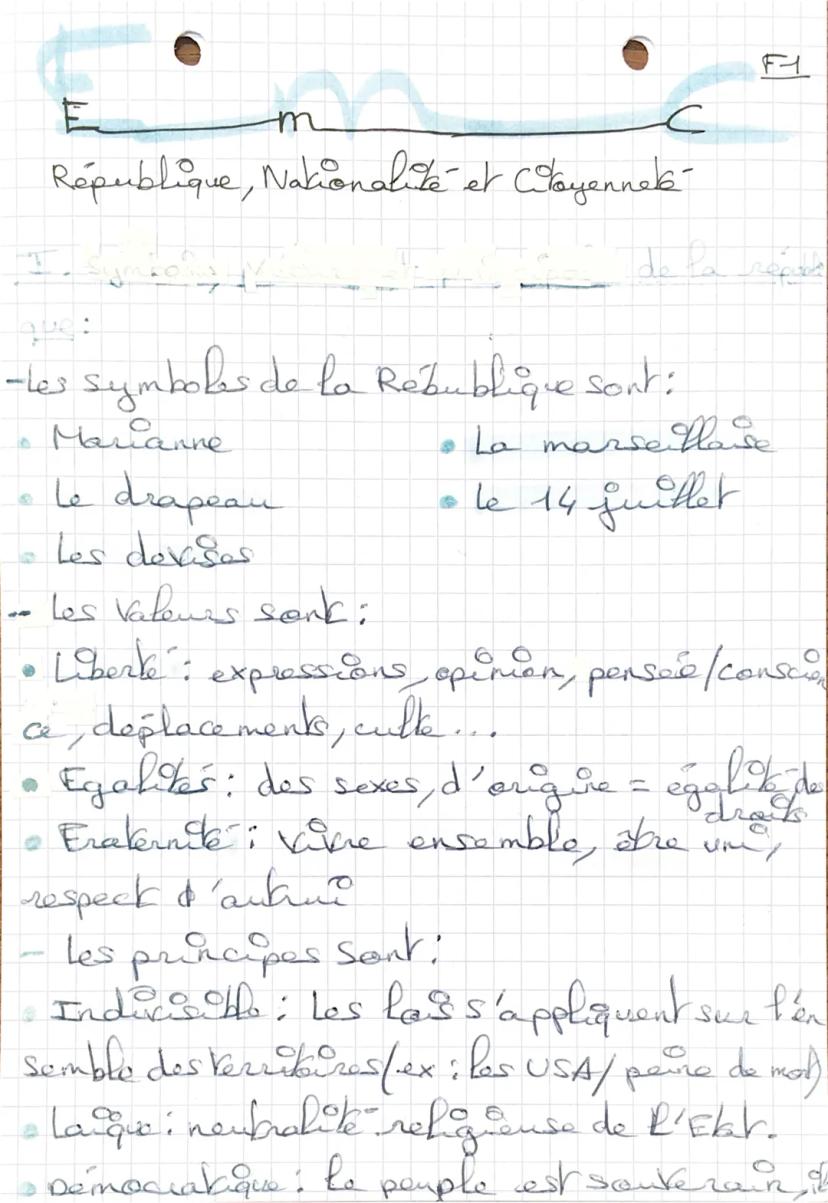 F-1
E m C
République, Nationalité et Citoyenneté
I. Symboles, valeurs et principes de la républi
que:
-Les symboles de la République sont:
• Marianne • La marseillaise
• Le drapeau • le 14 juillet
• Les devises
- Les valeurs sont:
• Liberté: expressions, opinion, pensée/conscien
ce, déplacements, culte...
• Egalités: des sexes, d'origine = égalité de
droits
• Fraternité: vivre ensemble, être uni,
respect d'autrui
- Les principes sont:
• Indivisible: Les lois s'appliquent sur l'en
semble des territoires (ex: les USA/ peine de mort)
• Laïque: neutralité religieuse de l'Etat.
• Démocratique: le peuple est souverain,